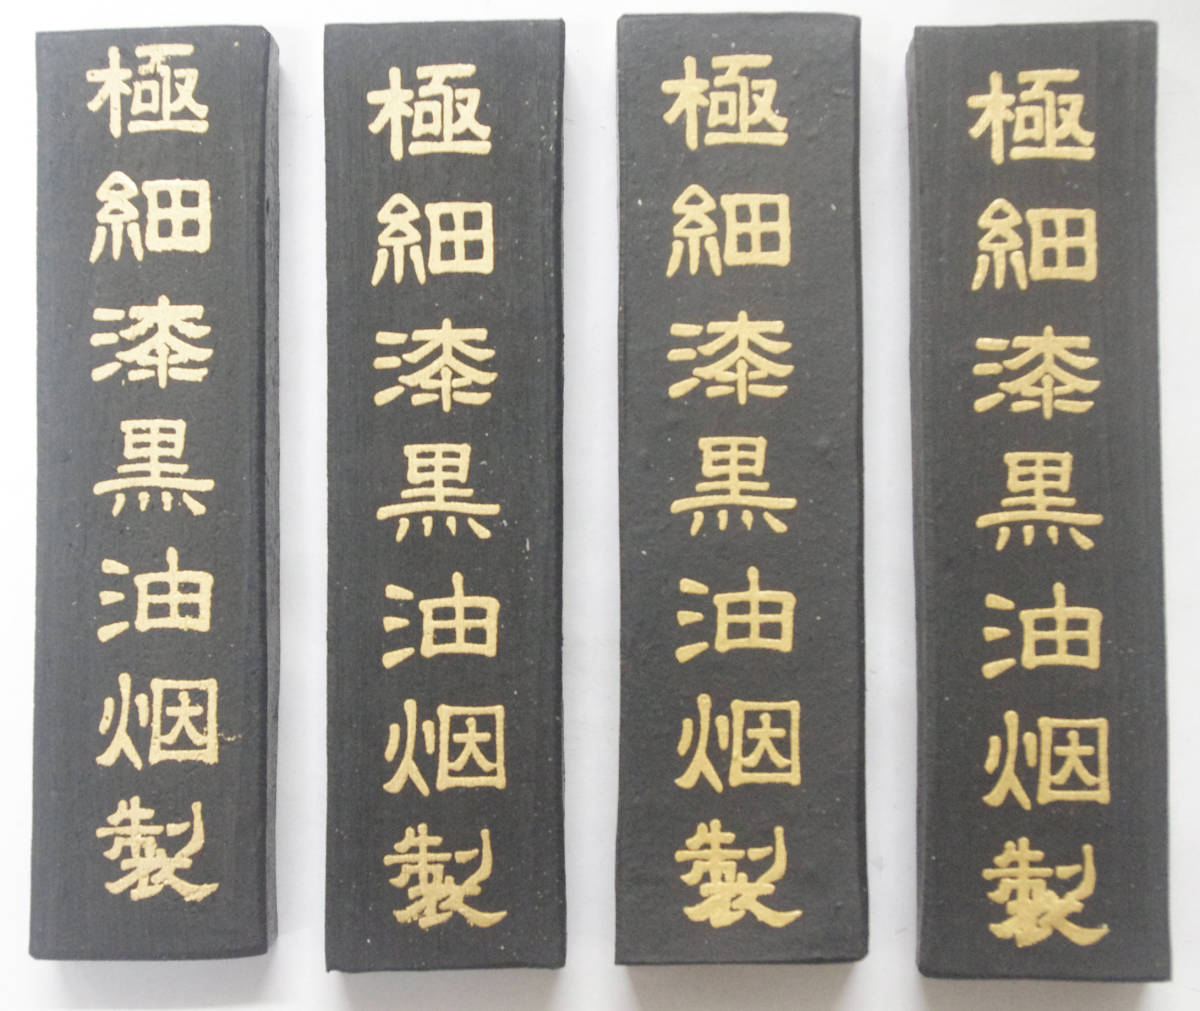 極細漆黒油烟製
極細漆黒油烟製
極細漆黒油烟製
極細漆黒油烟製